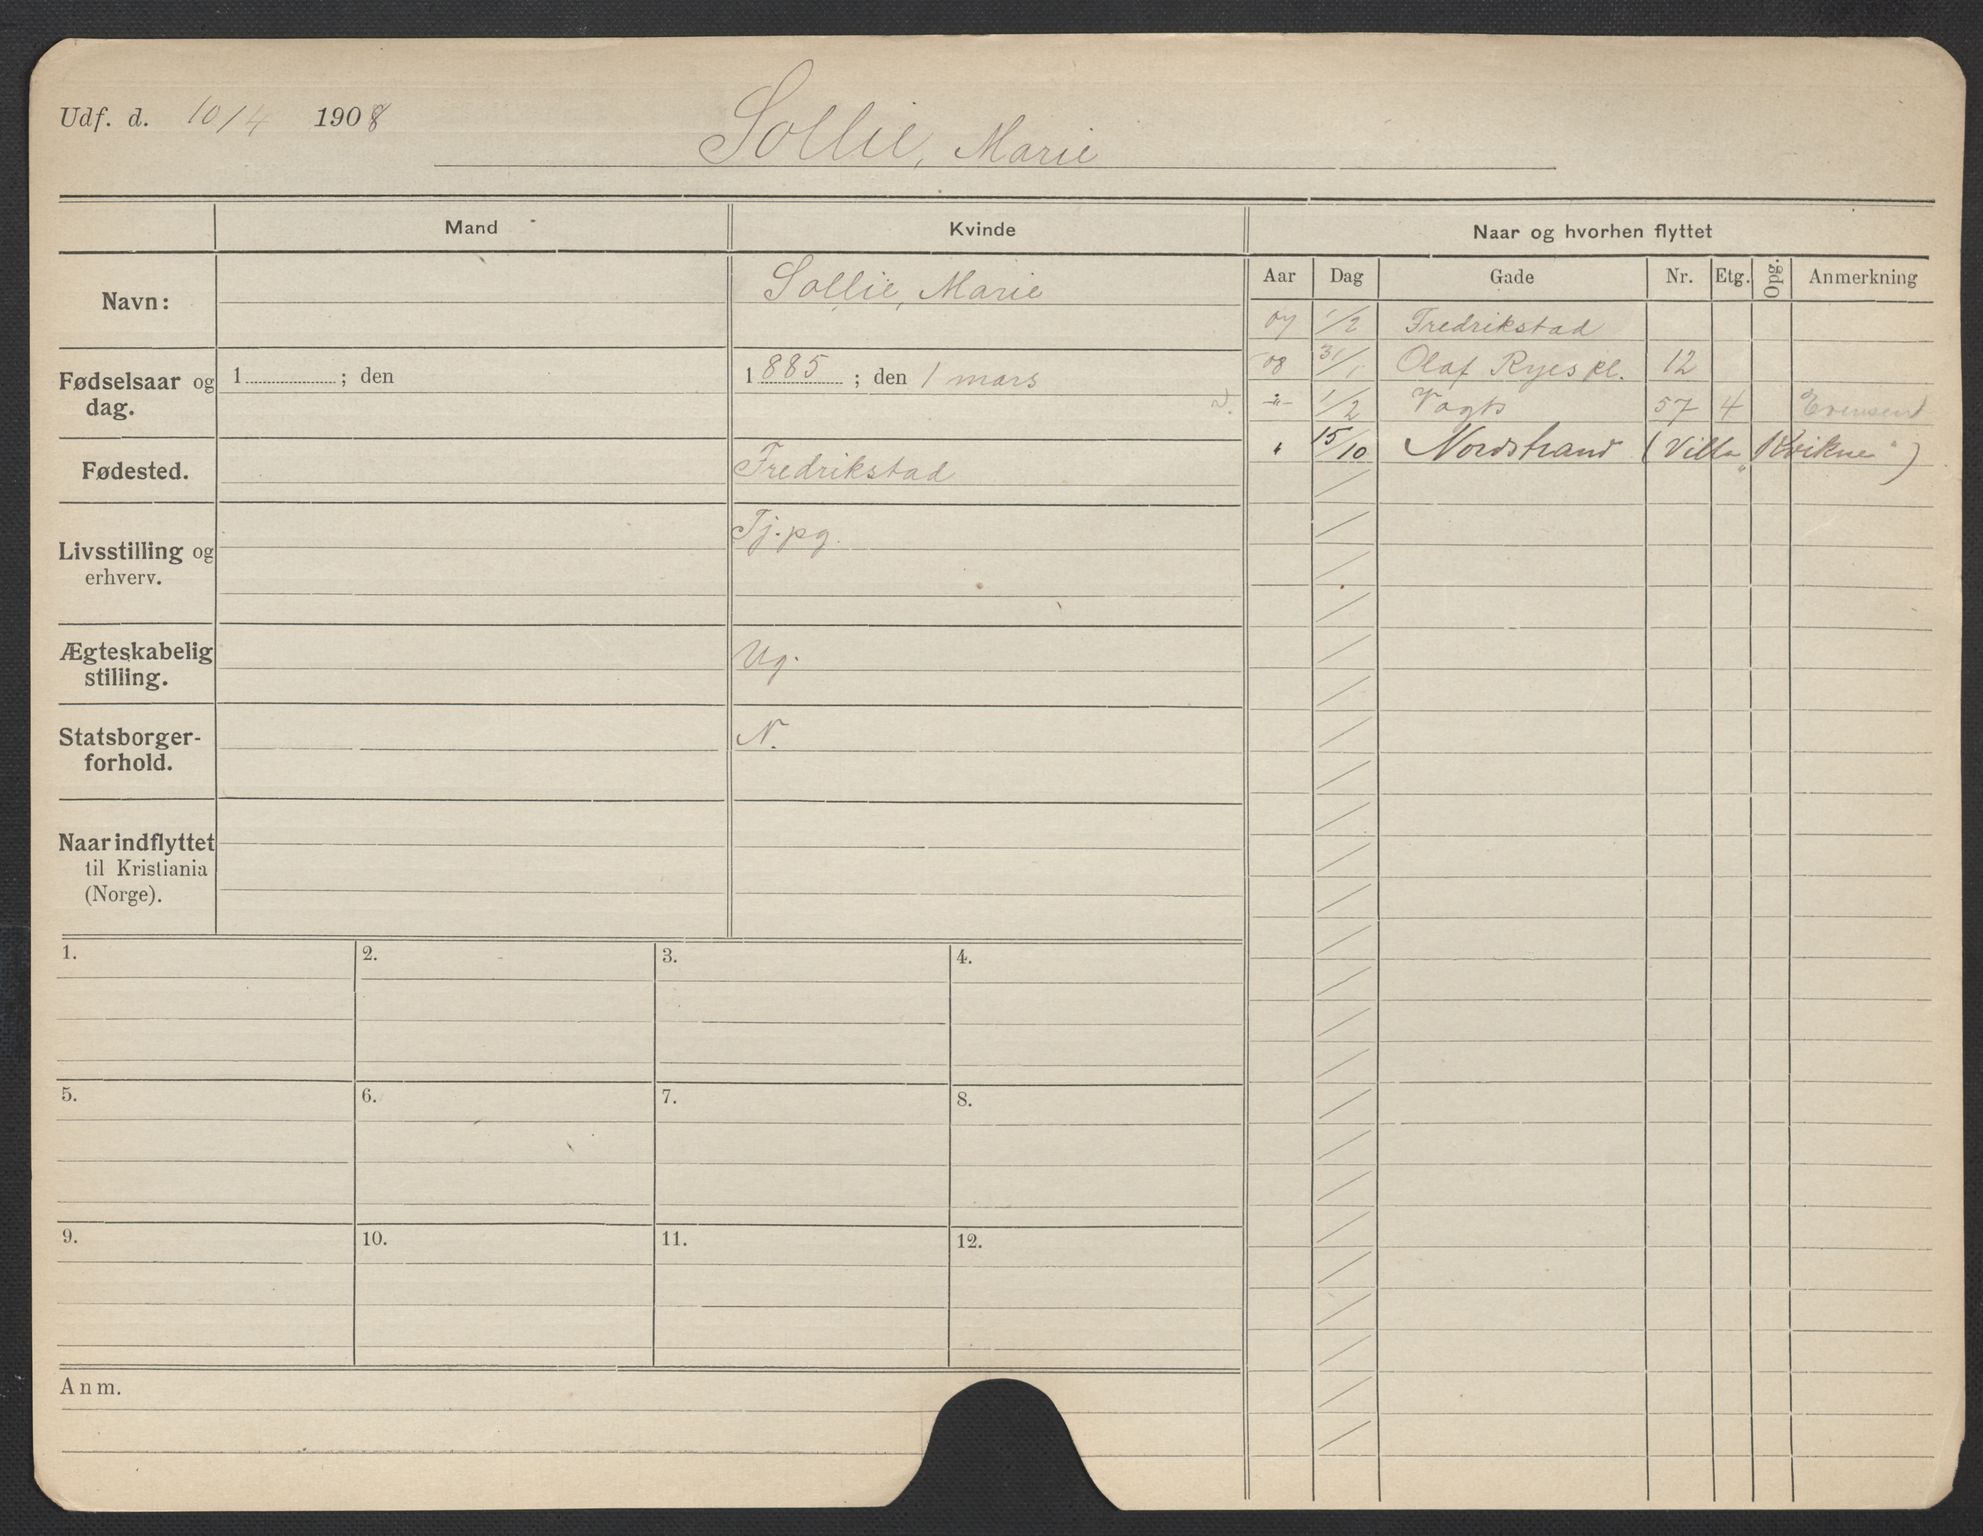 Udf. d. 10/4 1908
Sollie, Marie
Mand Kvinde Naar og hvorhen flyttet
Aar Dag Gade Nr. Etg. Opg. Anmerkning
Navn: Sollie, Marie
07 1/2 Fredrikstad
Fødselsaar og dag. 1 ; den 1885 ; den 1 mars
08 31/1 Olaf Ryes pl. 12
-"- 1/2 Vogts 57 4
Fødested. Fredrikstad
" 15/10 Nordstrand (Villa „Kvikne")
Livsstilling og erhverv. Tj.pg.
Ægteskabelig stilling. Ug.
Statsborger-
forhold. N.
Naar indflyttet
til Kristiania
(Norge).
1. 2. 3. 4.
5. 6. 7. 8.
9. 10. 11. 12.
Anm.